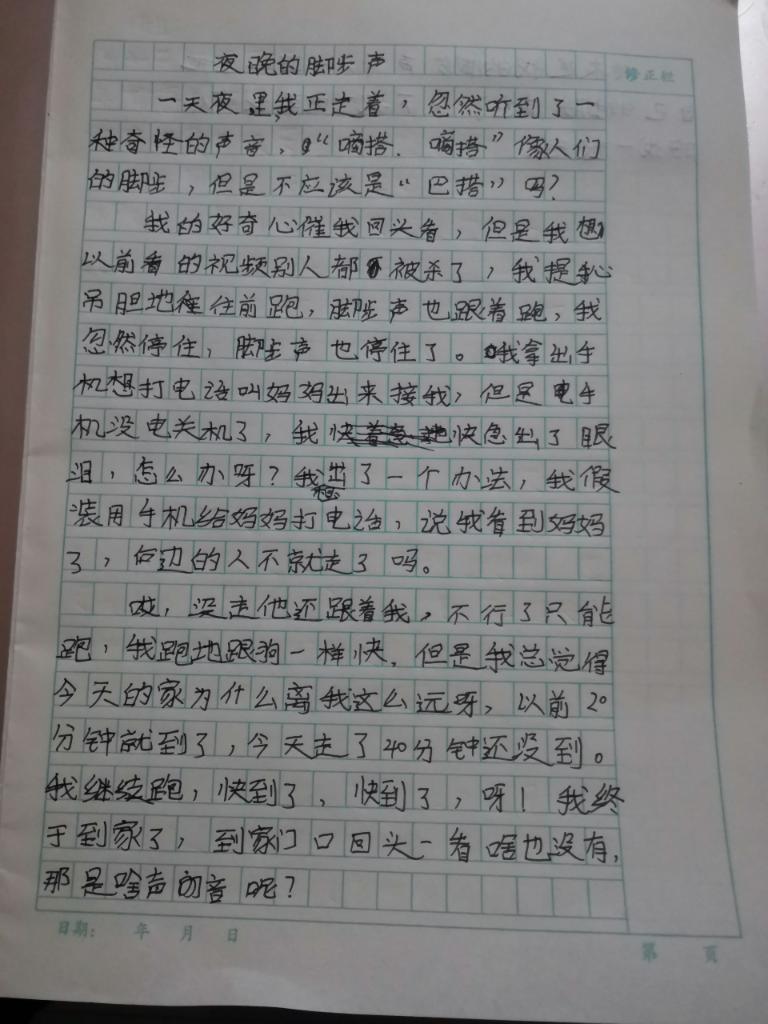 夜晚的脚步声
修正栏
一天夜里我正走着，忽然听到了一
种奇怪的声音，“嘀搭．嘀搭”像人们
的脚步，但是不应该是“巴搭”吗？
我的好奇心催我回头看，但是我想
以前看的视频别人都被杀了，我提心
吊胆地往前跑，脚步声也跟着跑，我
忽然停住，脚步声也停住了。我拿出手
机想打电话叫妈妈出来接我，但是手
机没电关机了，我快急出了眼
泪，怎么办呀？我想出了一个办法，我假
装用手机给妈妈打电话，说我看到妈妈
了，后边的人不就走了吗。
哎，没走他还跟着我，不行了只能
跑，我跑地跟狗一样快．但是我总觉得
今天的家为什么离我这么远呀，以前20
分钟就到了，今天走了40分钟还没到。
我继续跑，快到了，快到了，呀！我终
于到家了，到家门口回头一看啥也没有，
那是啥声的音呢？
日期： 年 月 日
第 页